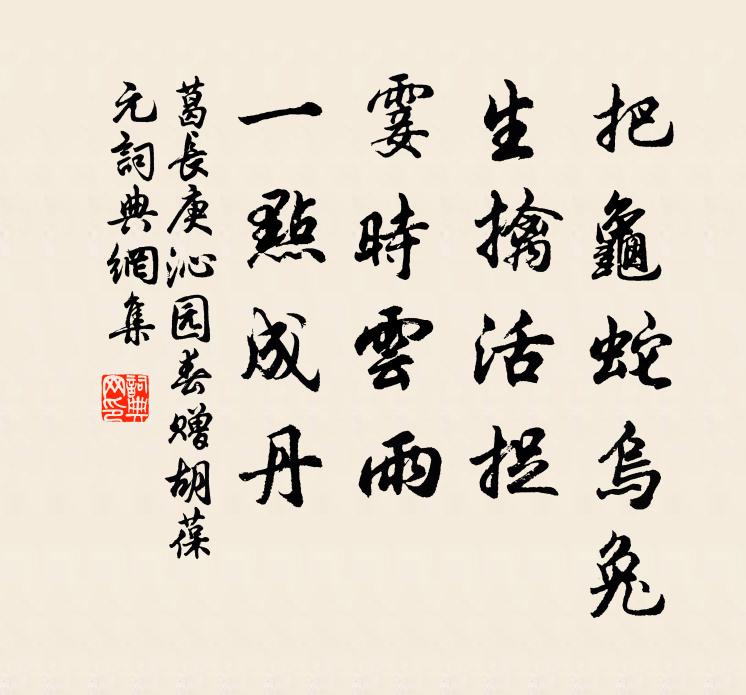 把龜蛇烏兔
生擒活捉
霎時雲雨
一點成丹
葛長庚沁园春赠胡葆
元詞典網集
詞典网印